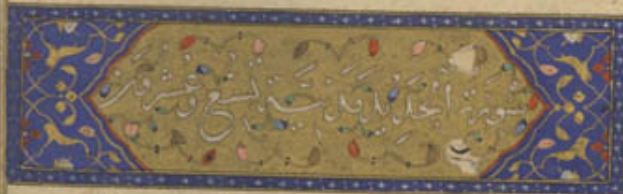 سورة الحديد مدنية تسع وعشرون